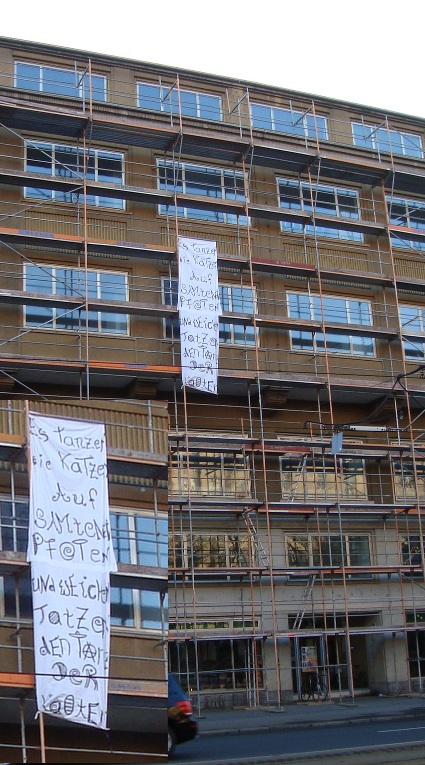 Es tanzen
die Katzen
Auf
SAMtenen
PFOTEN
UND WEICHE
TatZEN
dEN TANZ
DER
KatEr